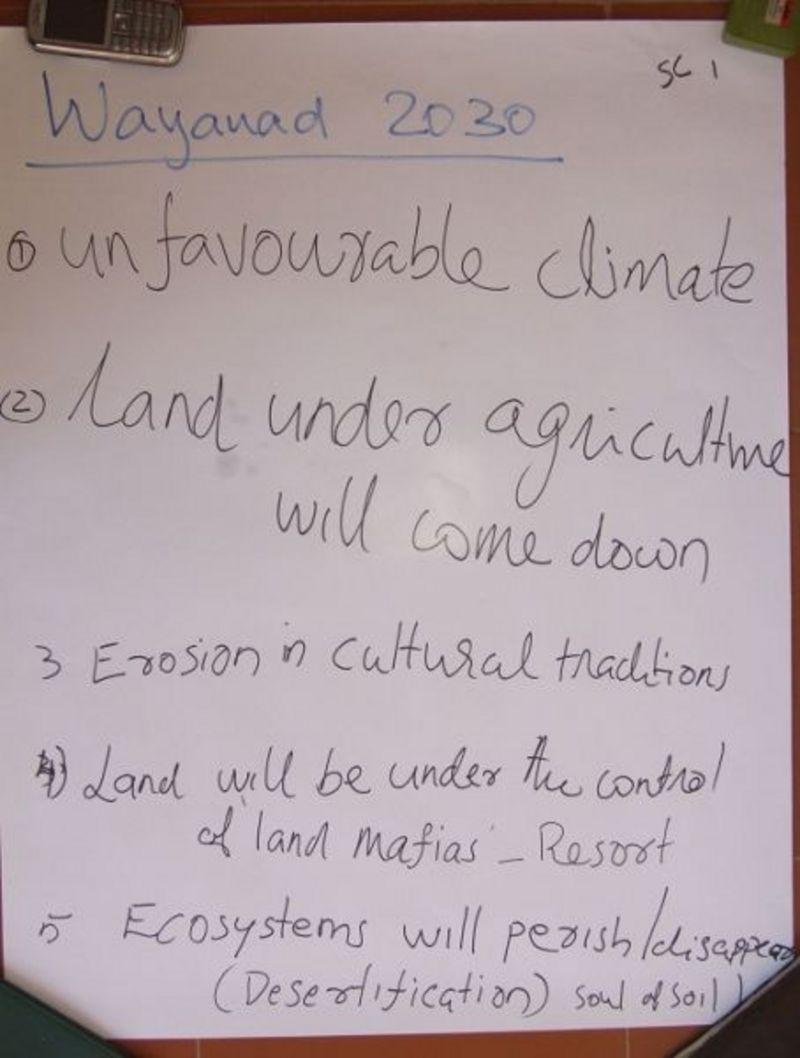 SC 1
Wayanad 2030
① unfavourable climate
② Land under agriculture
will come down
3 Erosion in cultural traditions
4) Land will be under the control
of land mafias - Resort
5 Ecosystems will perish/disappear
(Desertification) soul of soil